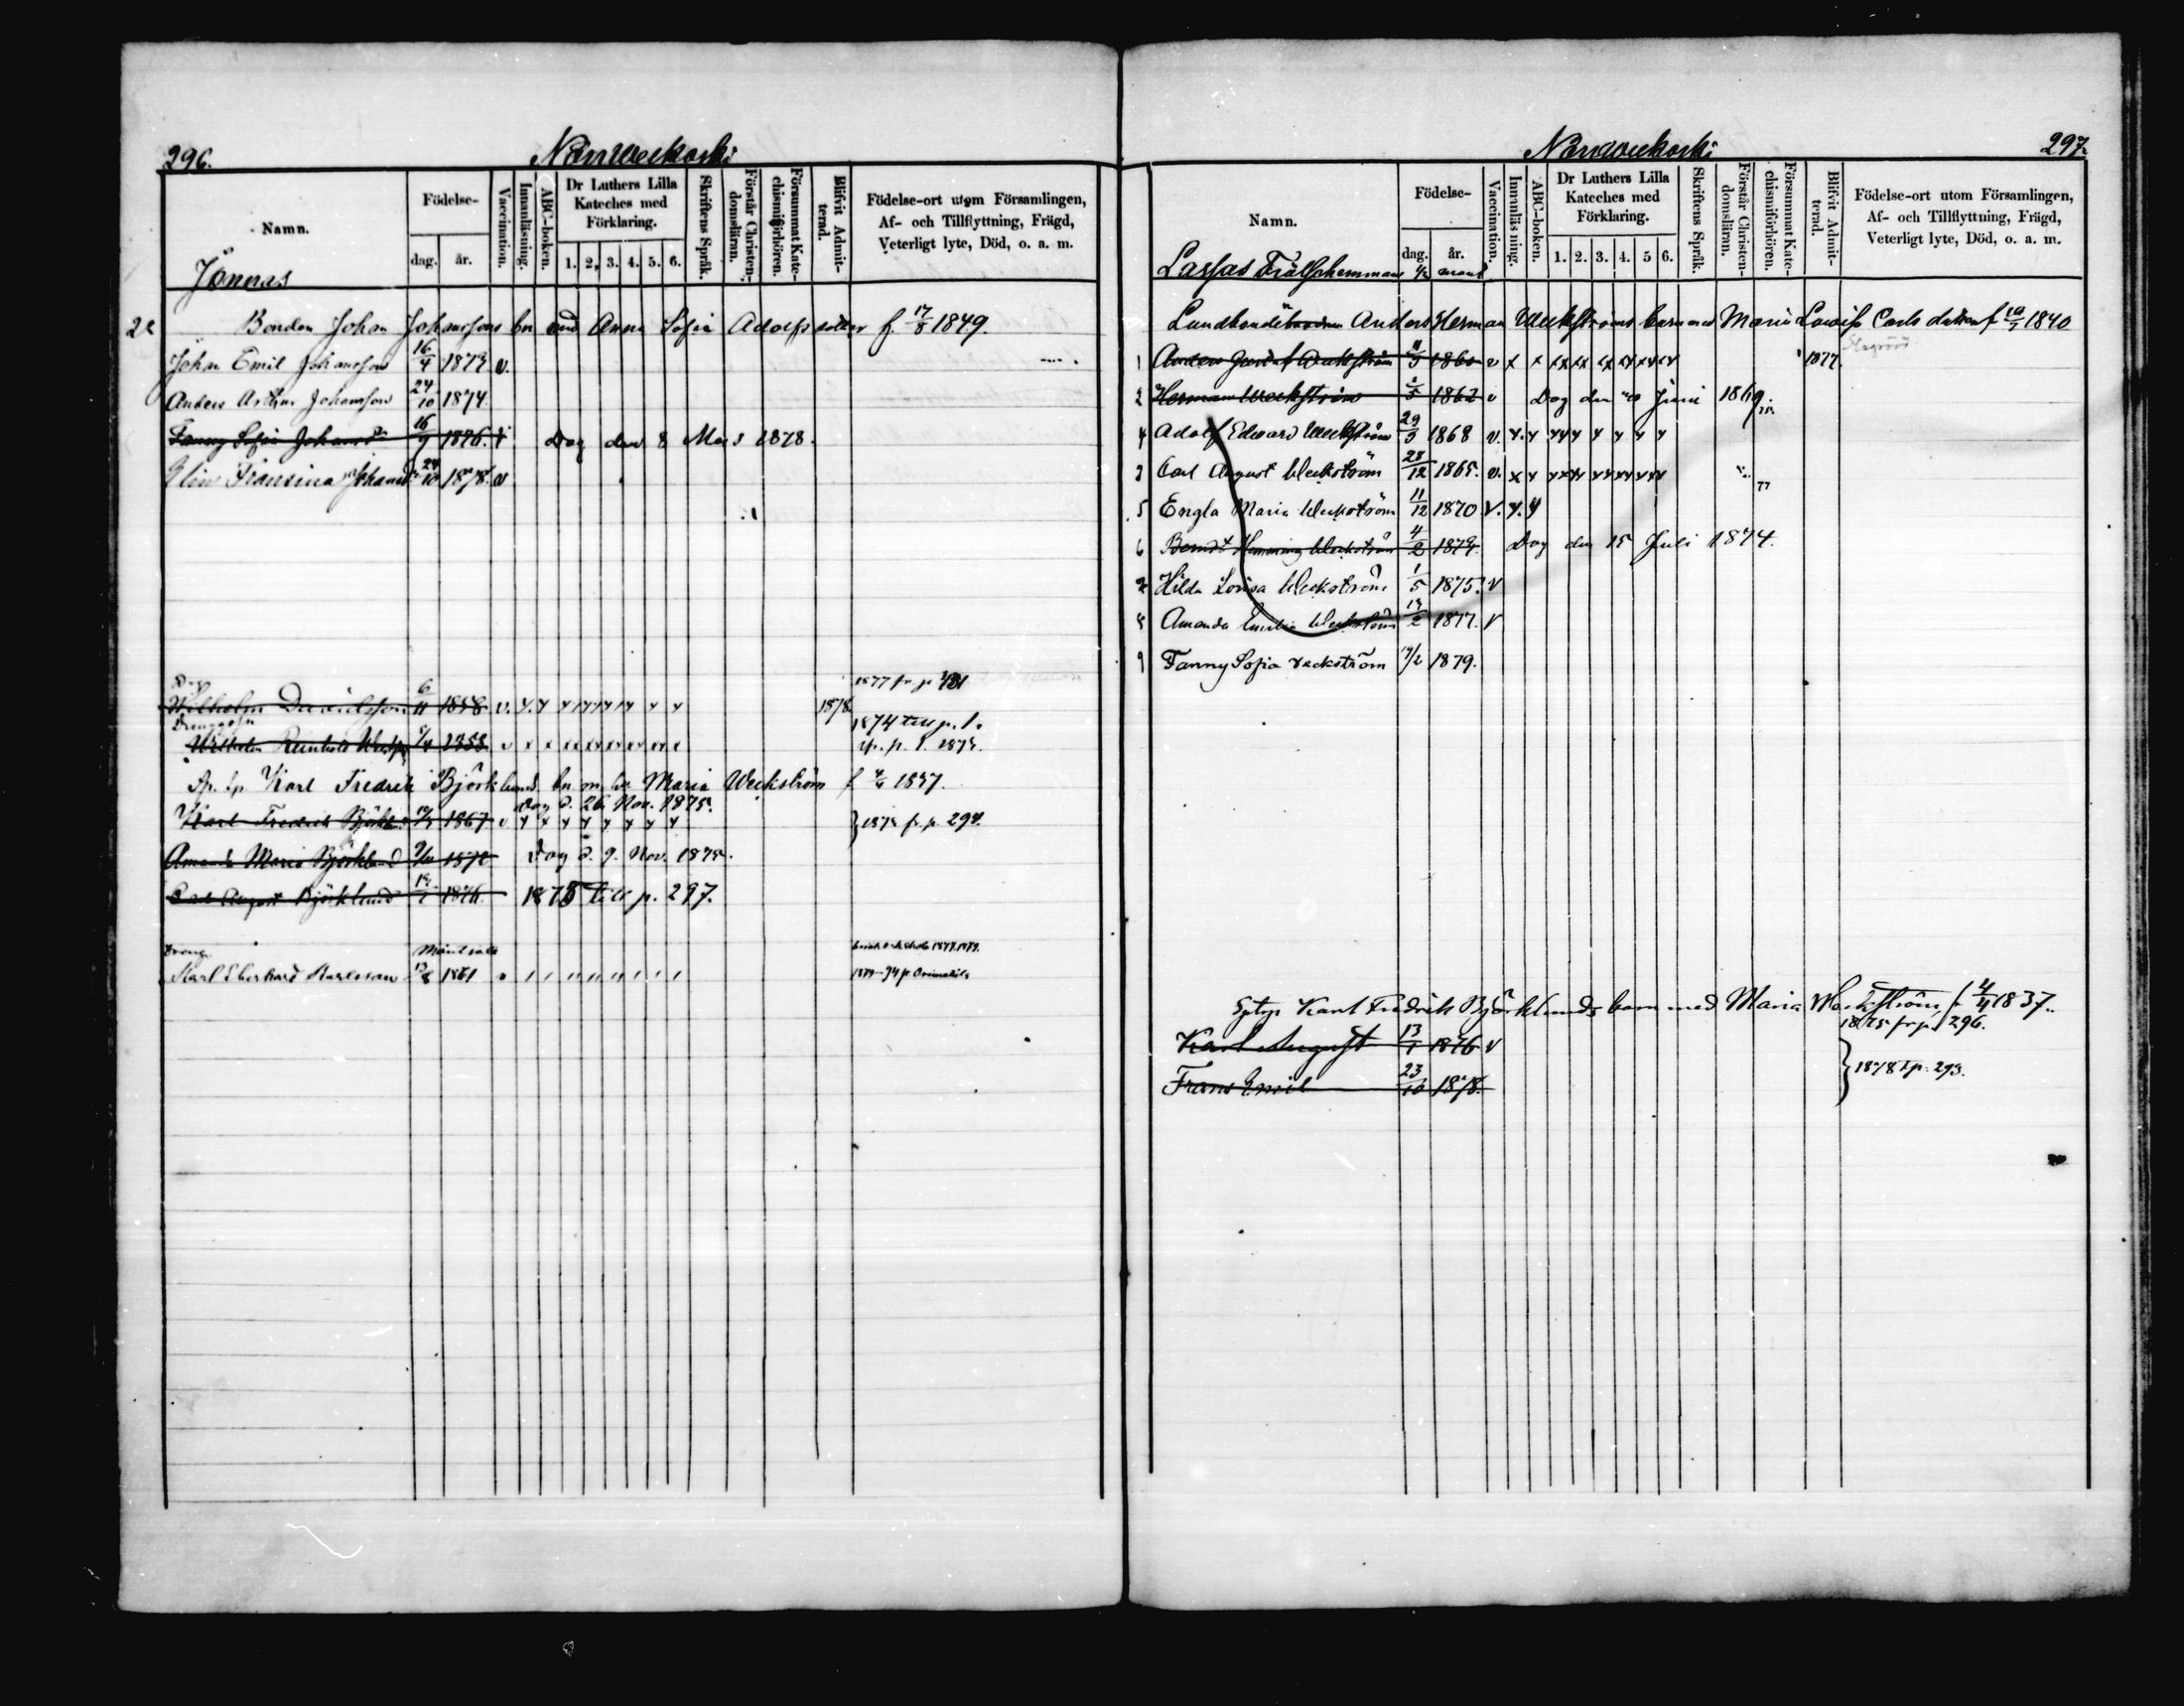 296.
Namn.
Födelse-
dag.
år.
Vaccination.
Innanläsning.
ABC-boken.
Dr Luthers Lilla Kateches med Förklaring.
1. 2, 3. 4. 5. 6.
Skriftens Språk.
Förstår Christendomsläran.
Försummat Katechismiförhören.
Blifvit Admitterad.
Födelse-ort utom Församlingen, Af- och Tillflyttning, Frägd, Veterligt lyte, Död, o. a. m.
Jönnas
Bonden Johan Johanssons bn med Anna Sofia Adolfsdotter f. 17/8 1849.
Johan Emil Johansson 16/4 1872 v.
Anders Arthur Johansson 24/10 1874.
Fanny Sofia Johansdr 16/9 1876. v Dog den 8 Mars 1878.
Elin Fransina Johansdr 24/10 1878. v
1877 fr. p. 181
Wilhelm Danielsson 6/11 1858 v. 1878.
1874 till p. 1.
Wilhelm Reinhold 1858 v
Karl Fredrik Björklund bn m. Maria Weckström f 4/4 1837.
dog d. 26 Nov. 1875.
Karl Fredrik Björkl. 1867 v
Amanda Maria Björklund 1872 dog d. 9. Nov. 1875.
Carl August Björklund 13/1 1876. 1875 till p. 297.
Dreng.
Mäntsälä
Karl Eberhard Karlsson 1861
297.
Namn.
Födelse-
dag.
år.
Vaccination.
Innanläsning.
ABC-boken.
Dr Luthers Lilla Kateches med Förklaring.
1. 2. 3. 4. 5 6.
Skriftens Språk.
Förstår Christendomsläran.
Försummat Katechismiförhören.
Blifvit Admitterad.
Födelse-ort utom Församlingen, Af- och Tillflyttning, Frägd, Veterligt lyte, Död, o. a. m.
Lassas Frälsehemman
Anders Herman Weckströms barn med Maria Lovisa Carlsdotter f 1840
1 Anders Gustaf Weckström 1860 v 1877.
2 Herman Weckström 1862 v Dog den 20 Juni 1869.
4 Adolf Edward Weckström 29/3 1868 v.
3 Carl August Weckström 28/12 1865. v.
5 Engla Maria Weckström 11/12 1870 v.
6 Berndt Hemming Weckström 4/2 1874. Dog den 15 Juli 1874.
Hilda Lovisa Weckström 1/5 1875. v
8 Amanda Emilia Weckström 1877. v
9 Fanny Sofia Weckström 1879.
Karl Fredrik Björklunds barn med Maria Weckström, f 4/4 1837.
1875 fr p. 296.
Karl August 13/1 1876 v
Frans Emil 23/10 1878.
1878 t p. 293.